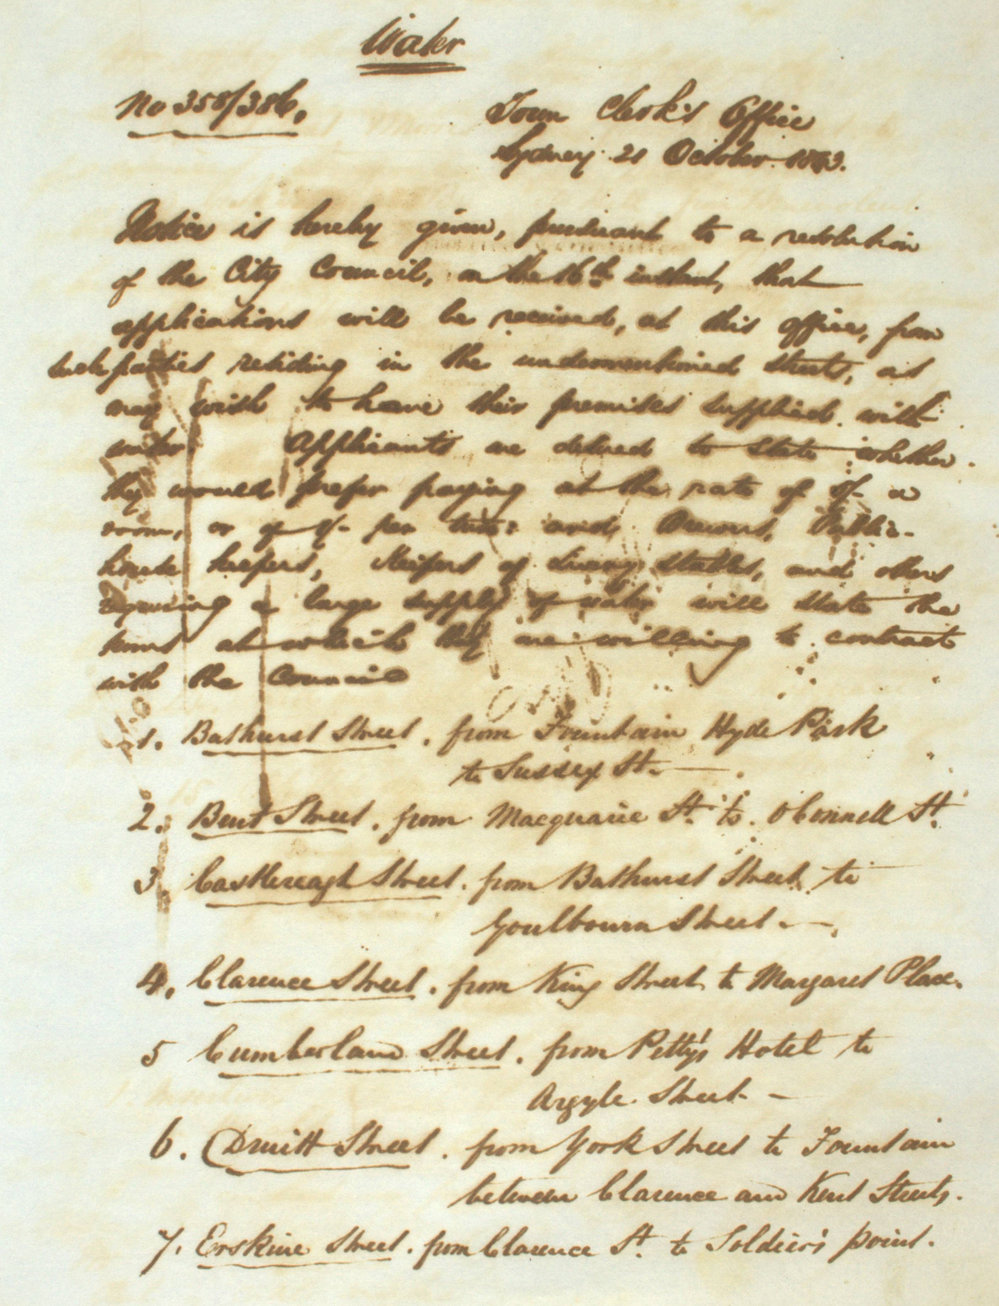 Water
No 358/386.
Town Clerk's Office
Sydney 21 October 1843.
Notice is hereby given, pursuant to a resolution
of the City Council, on the 16th instant, that
applications will be received, at this office, from
such parties residing in the undermentioned streets, as
may wish to have their premises supplied with
water. Applicants are desired to state whether
they would prefer paying at the rate of 5/- a
room, or of 5/- per and Brewers, Public-
house keepers, Keepers of Livery Stables, and others
requiring a large supply of water will state the
sums at which they are willing to contract
with the Council
1. Bathurst Street, from Fountain Hyde Park
to Sussex St. —
2. Bent Street, from Macquarie St. to O'Connell St.
3. Castlereagh Street, from Bathurst Street to
Goulbourn Street. —
4. Clarence Street, from King Street to Margaret Place.
5 Cumberland Street, from Petty's Hotel to
Argyle Street —
6. Druitt Street, from York Street to Fountain
between Clarence and Kent Streets.
7. Erskine Street, from Clarence St. to Soldier's point.